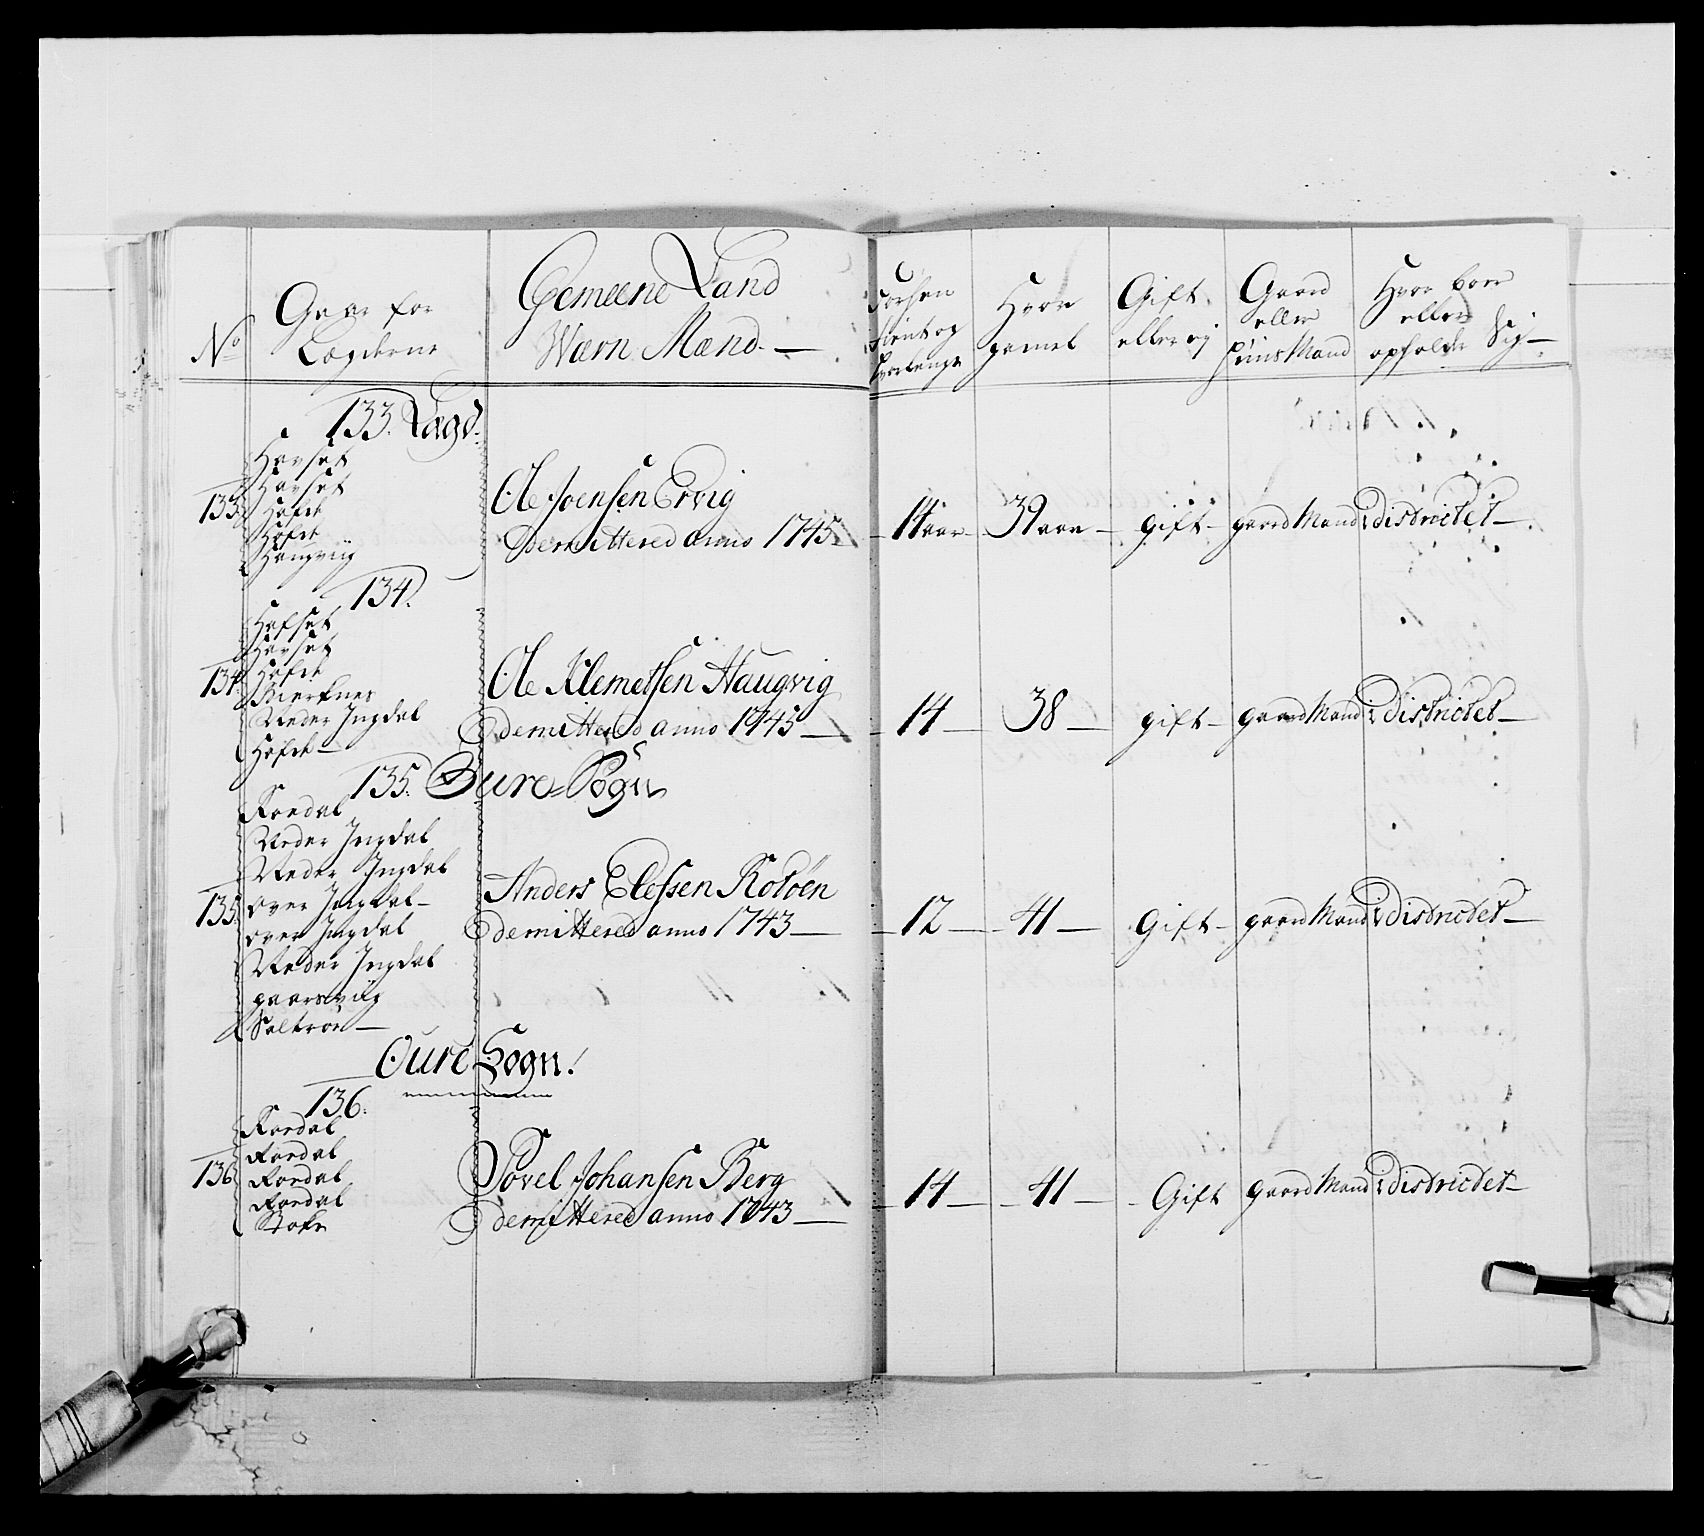 No
Gaar for
Lægderne
Gemeene Land
Wærn Mænd. —
tient og
hvorlenge
Hvor
gamel
Gift
eller ej
Gaard
eller
huusMand
Hvor boer
eller
opholder Sig —
133. Lægd.
133.
Havset
Havset
Hofdt
Hofdt
Haugviig
Ole Joensen Ervig
demittered anno 1745
14 aar
39 aar —
gift —
gaard Mand
i districtet —
134.
134.
Hafset
Havset
Hofdt
Nieder Ingdal
Hofdt —
Ole Klemetsen Haugvig
demittered anno 1745 —
14 —
38 —
gift —
gaard Mand
i districtet —
135. Oure Sogn
135.
Roedal
Neder Ingdal
Neder Ingdal
Over Ingdal —
over Ingdal
Neder Ingdal
gaarsviig
Saltrøe —
Anders Elefsen Roløen
demittered anno 1743 —
12 —
41 —
Gift —
gaard Mand
i districtet —
Oure Sogn!
136.
136
Roedal
Roedal
Roedal
Roedal
Povel Johansen Berg
demittered anno 1743 —
14 —
41 —
Gift
gaard Mand
i districtet —